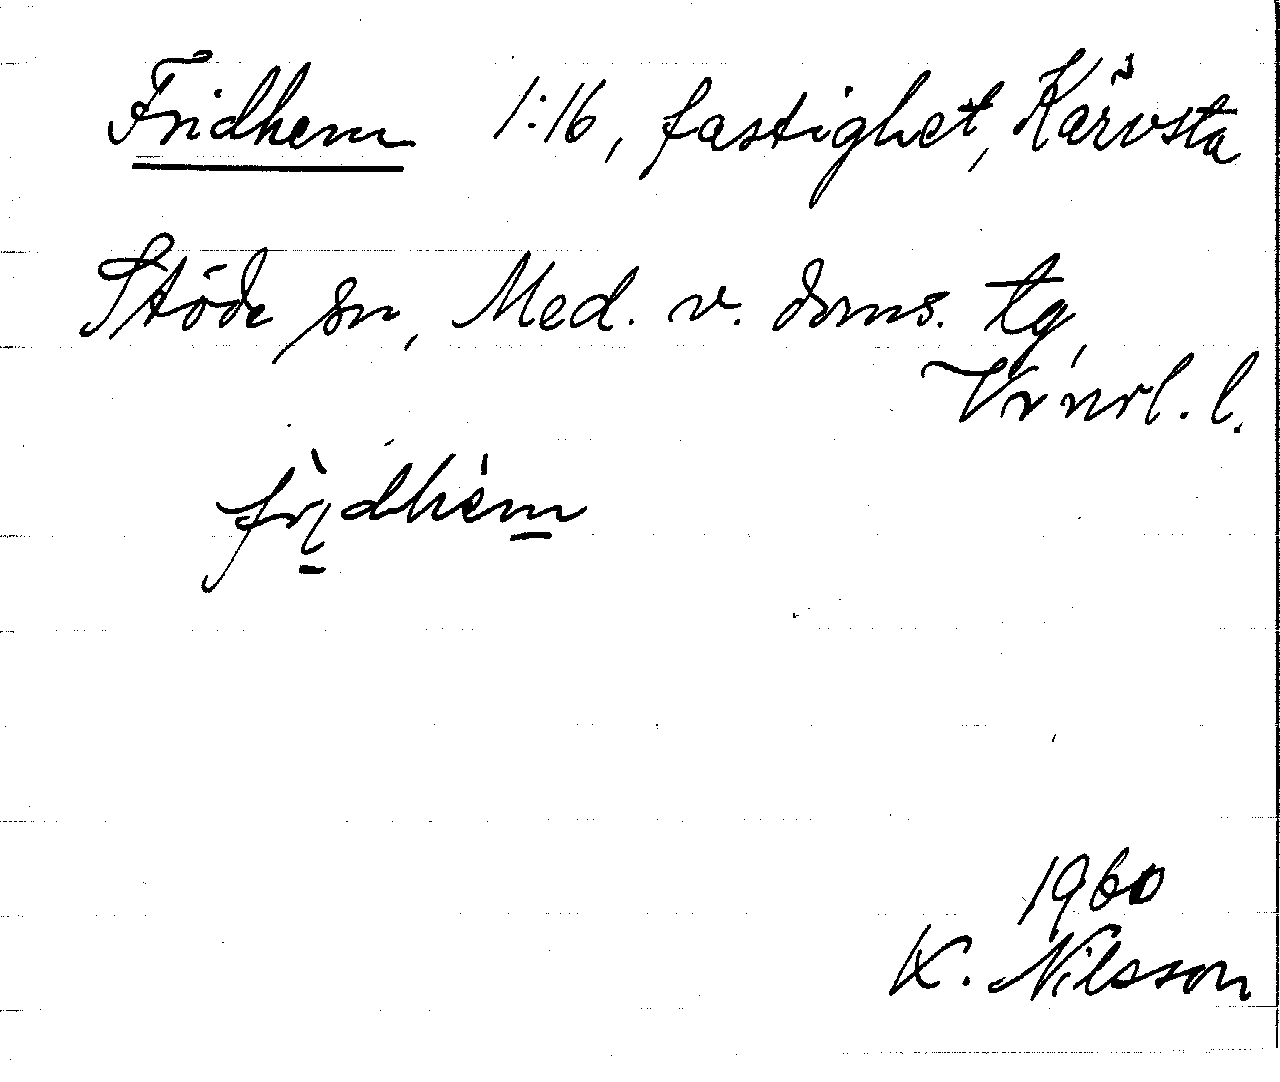 Fridhem 1:16, fastighet, Kärvsta
Stöde sn, Med. v. doms. tg,
V:norl. l.
1960
K. Nilsson